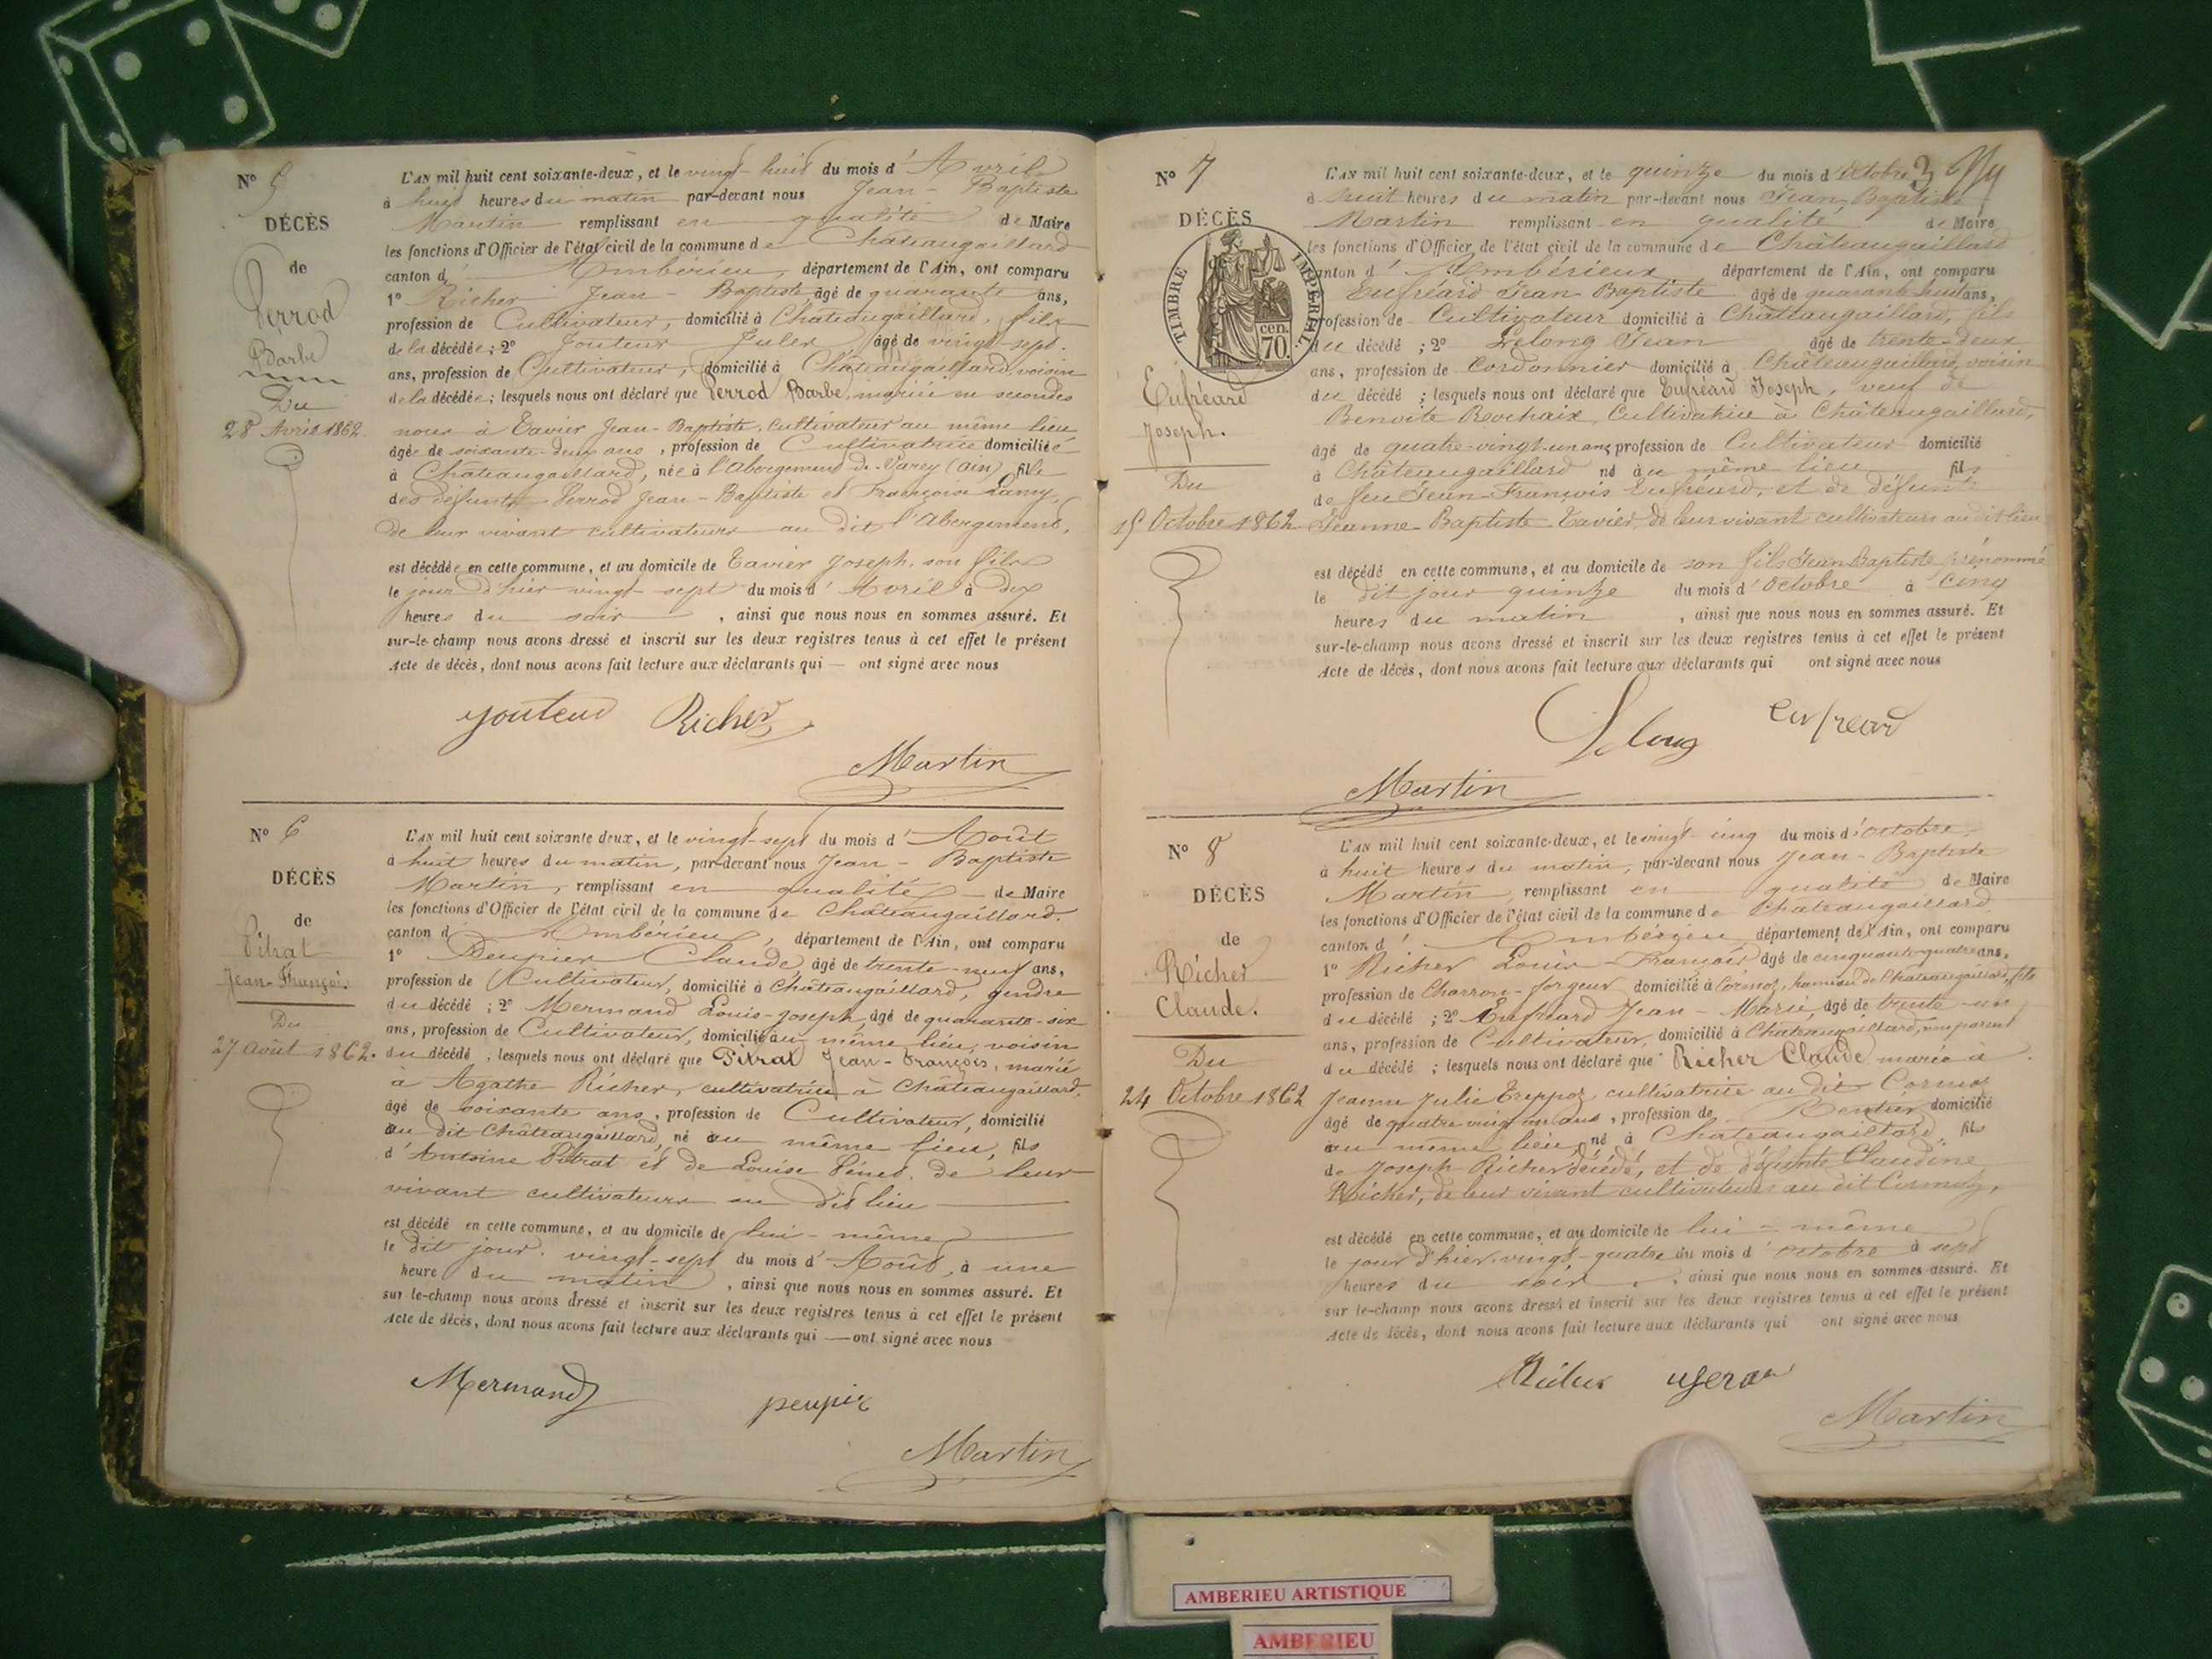 N° 5
DÉCÈS
de
Perrod
Barbe
Du
28 Avril 1862.
L'AN mil huit cent soixante-deux, et le vingt-huit du mois d'Avril
à huit heures du matin par-devant nous Jean-Baptiste
Martin remplissant en qualité de Maire
les fonctions d'Officier de l'état civil de la commune de Châteaugaillard
canton d'Ambérieu, département de l'Ain, ont comparu
1° Richer Jean-Baptiste âgé de quarante ans,
profession de Cultivateur, domicilié à Châteaugaillard, fils
de la décédée; 2° Jouteur Jules âgé de vingt-sept
ans, profession de Cultivateur, domicilié à Châteaugaillard, voisin
de la décédée; lesquels nous ont déclaré que Perrod Barbe, mariée en secondes
noces à Tavier Jean-Baptiste, cultivateur au même lieu
âgée de soixante-deux ans, profession de Cultivatrice domiciliée
à Châteaugaillard, née à l'Abergement de Varey (Ain), fille
des défunts Perrod Jean-Baptiste et Françoise Lamy,
de leur vivant cultivateurs au dit l'Abergement,
est décédée en cette commune, et au domicile de Tavier Joseph, son fils
le jour d'hier vingt-sept du mois d'Avril à dix
heures du soir, ainsi que nous nous en sommes assuré. Et
sur-le-champ nous avons dressé et inscrit sur les deux registres tenus à cet effet le présent
Acte de décès, dont nous avons fait lecture aux déclarants qui — ont signé avec nous
Richer
Martin
N° 6
DÉCÈS
de
Pitrat
Jean-François
Du
27 Août 1862.
L'AN mil huit cent soixante deux, et le vingt-sept du mois d'Août
à huit heures du matin, par-devant nous Jean-Baptiste
Martin, remplissant en qualité de Maire
les fonctions d'Officier de l'état civil de la commune de Châteaugaillard.
canton d'Ambérieu, département de l'Ain, ont comparu
1° Peupier Claude, âgé de trente-neuf ans,
profession de Cultivateur, domicilié à Châteaugaillard, gendre
du décédé; 2° Mermand Louis-Joseph, âgé de quarante-six
ans, profession de Cultivateur, domicilié au même lieu, voisin
du décédé; lesquels nous ont déclaré que Pitrat Jean-François, marié
à Agathe Richer, cultivatrice à Châteaugaillard,
âgé de soixante ans, profession de Cultivateur, domicilié
au dit Châteaugaillard, né au même lieu, fils
d'Antoine Pitrat et de Louise de leur
vivant cultivateurs au dit lieu
est décédé en cette commune, et au domicile de lui-même
le dit jour vingt-sept du mois d'Août, à une
heure du matin, ainsi que nous nous en sommes assuré. Et
sur le-champ nous avons dressé et inscrit sur les deux registres tenus à cet effet le présent
Acte de décès, dont nous avons fait lecture aux déclarants qui — ont signé avec nous
Mermand peupier
Martin
3
N° 7
DÉCÈS
TIMBRE IMPERIAL
70 cen.
Eufréard
Joseph.
Du
15 Octobre 1862
L'AN mil huit cent soixante-deux, et le quinze du mois d'Octobre
à huit heures du matin par-devant nous Jean Baptiste
Martin remplissant en qualité de Maire
les fonctions d'Officier de l'état civil de la commune de Châteaugaillard
canton d'Ambérieux département de l'Ain, ont comparu
Eufréard Jean Baptiste âgé de quarante huit ans,
profession de Cultivateur domicilié à Châteaugaillard, fils
du décédé; 2° Lelong Jean âgé de trente-deux
ans, profession de Cordonnier domicilié à Châteaugaillard, voisin
du décédé; lesquels nous ont déclaré que Eufréard Joseph, veuf de
Benoite Rochaix, Cultivatrice à Châteaugaillard,
âgé de quatre-vingt-un ans profession de Cultivateur domicilié
à Châteaugaillard né au même lieu fils
de feu Jean-François Eufréard, et de défunte
Jeanne-Baptiste Tavier, de leur vivant cultivateurs audit lieu
est décédé en cette commune, et au domicile de son fils Jean Baptiste prénommé
le dit jour quinze du mois d'Octobre à cinq
heures du matin, ainsi que nous nous en sommes assuré. Et
sur-le-champ nous avons dressé et inscrit sur les deux registres tenus à cet effet le présent
Acte de décès, dont nous avons fait lecture aux déclarants qui ont signé avec nous
Lelong Eufreard
Martin
N° 8
DÉCÈS
de
Richer
Claude.
Du
24 Octobre 1862
L'AN mil huit cent soixante-deux, et le vingt-cinq du mois d'Octobre,
à huit heures du matin, par-devant nous Jean-Baptiste
Martin, remplissant en qualité de Maire
les fonctions d'Officier de l'état civil de la commune de Châteaugaillard
canton d'Ambérieu, département de l'Ain, ont comparu
1° Richer Louis-François âgé de cinquante-quatre ans,
profession de Charron-forgeur domicilié à Cormoz, hameau de Châteaugaillard, fils
du décédé; 2° Eufréard Jean-Marie, âgé de trente-un
ans, profession de Cultivateur, domicilié à Châteaugaillard, non parent
du décédé; lesquels nous ont déclaré que Richer Claude marié à
Jeanne Julie Treppoz cultivatrice au dit Cormoz
âgé de quatre vingt un ans, profession de Rentier domicilié
au même lieu, né à Châteaugaillard, fils
de Joseph Richer décédé, et de défunte Claudine
Richer, de leur vivant cultivateurs au dit Cormoz,
est décédé en cette commune, et au domicile de lui-même
le jour d'hier vingt-quatre du mois d'Octobre à sept
heures du soir, ainsi que nous nous en sommes assuré. Et
sur le-champ nous avons dressé et inscrit sur les deux registres tenus à cet effet le présent
Acte de décès, dont nous avons fait lecture aux déclarants qui ont signé avec nous
Richer
Martin
AMBERIEU ARTISTIQUE
AMBERIEU